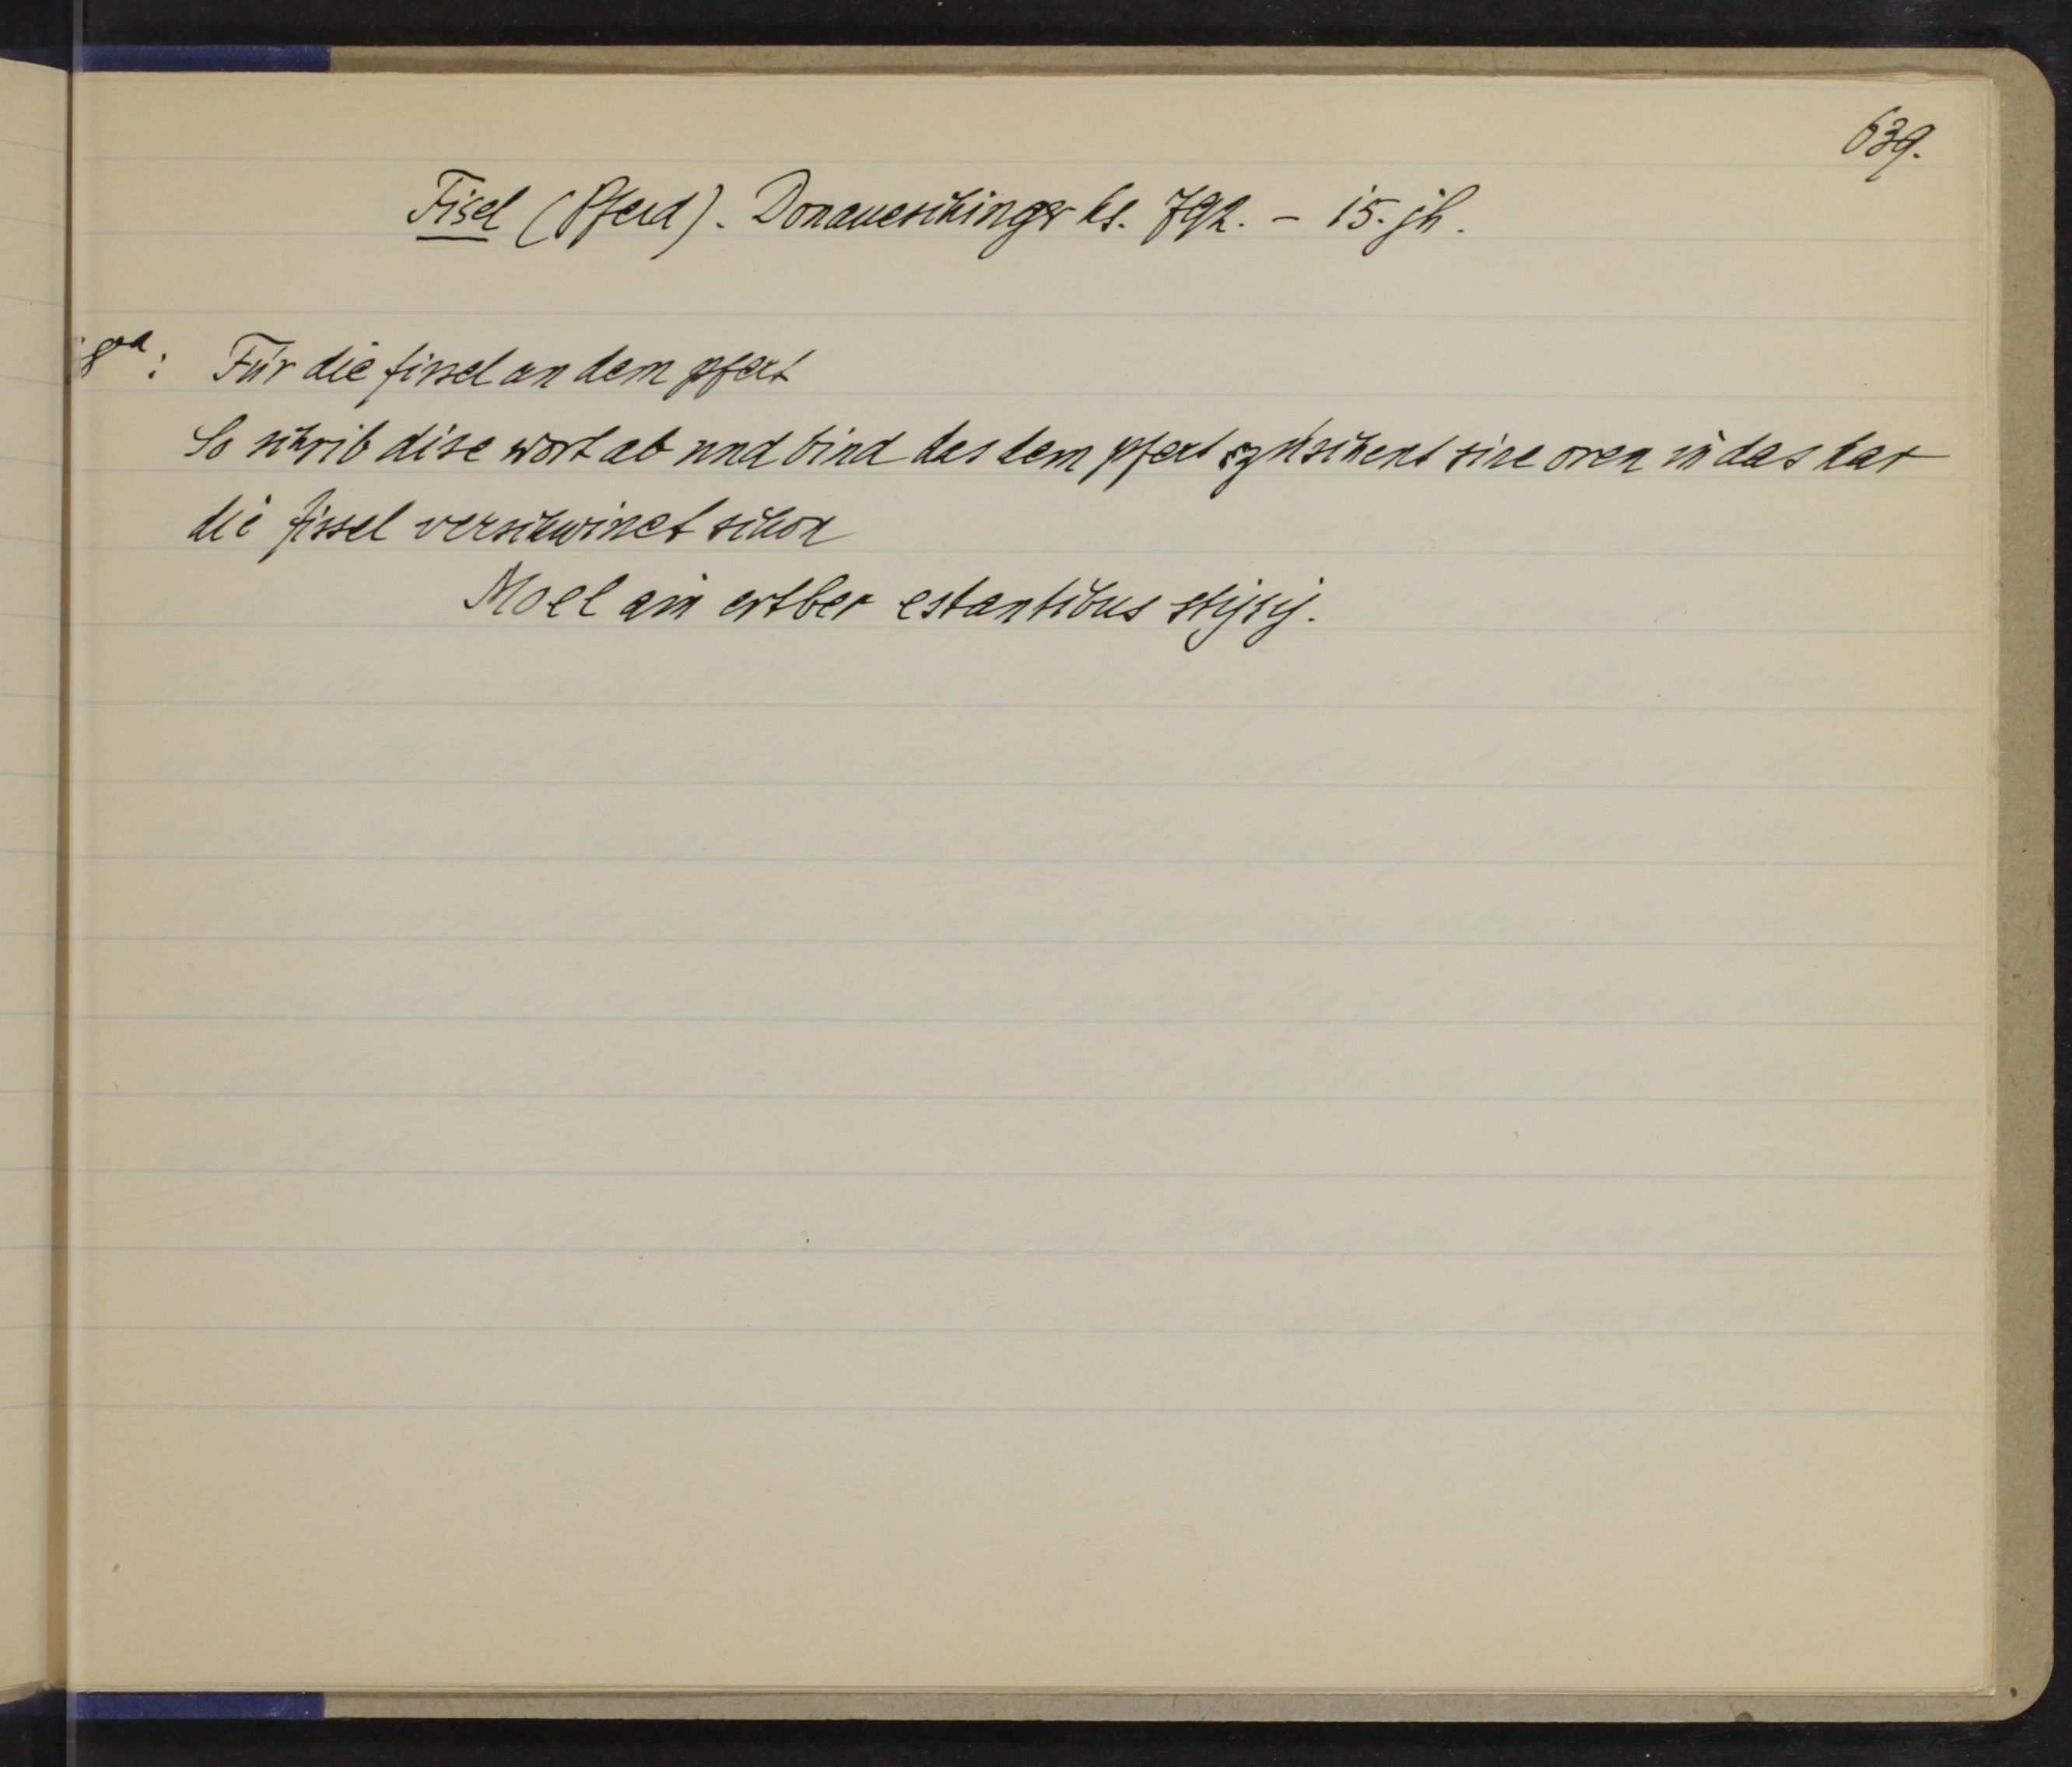 639.
Fisel (Pferd). Donaueschinger hs. 792. – 15. jh.
8va: Für die fissel an dem pfert
So schrib dise wort ab und bind das dem pfert zwschent sine oren in das har
die fissel verschwinet schon
Moel ain ertber estantibus